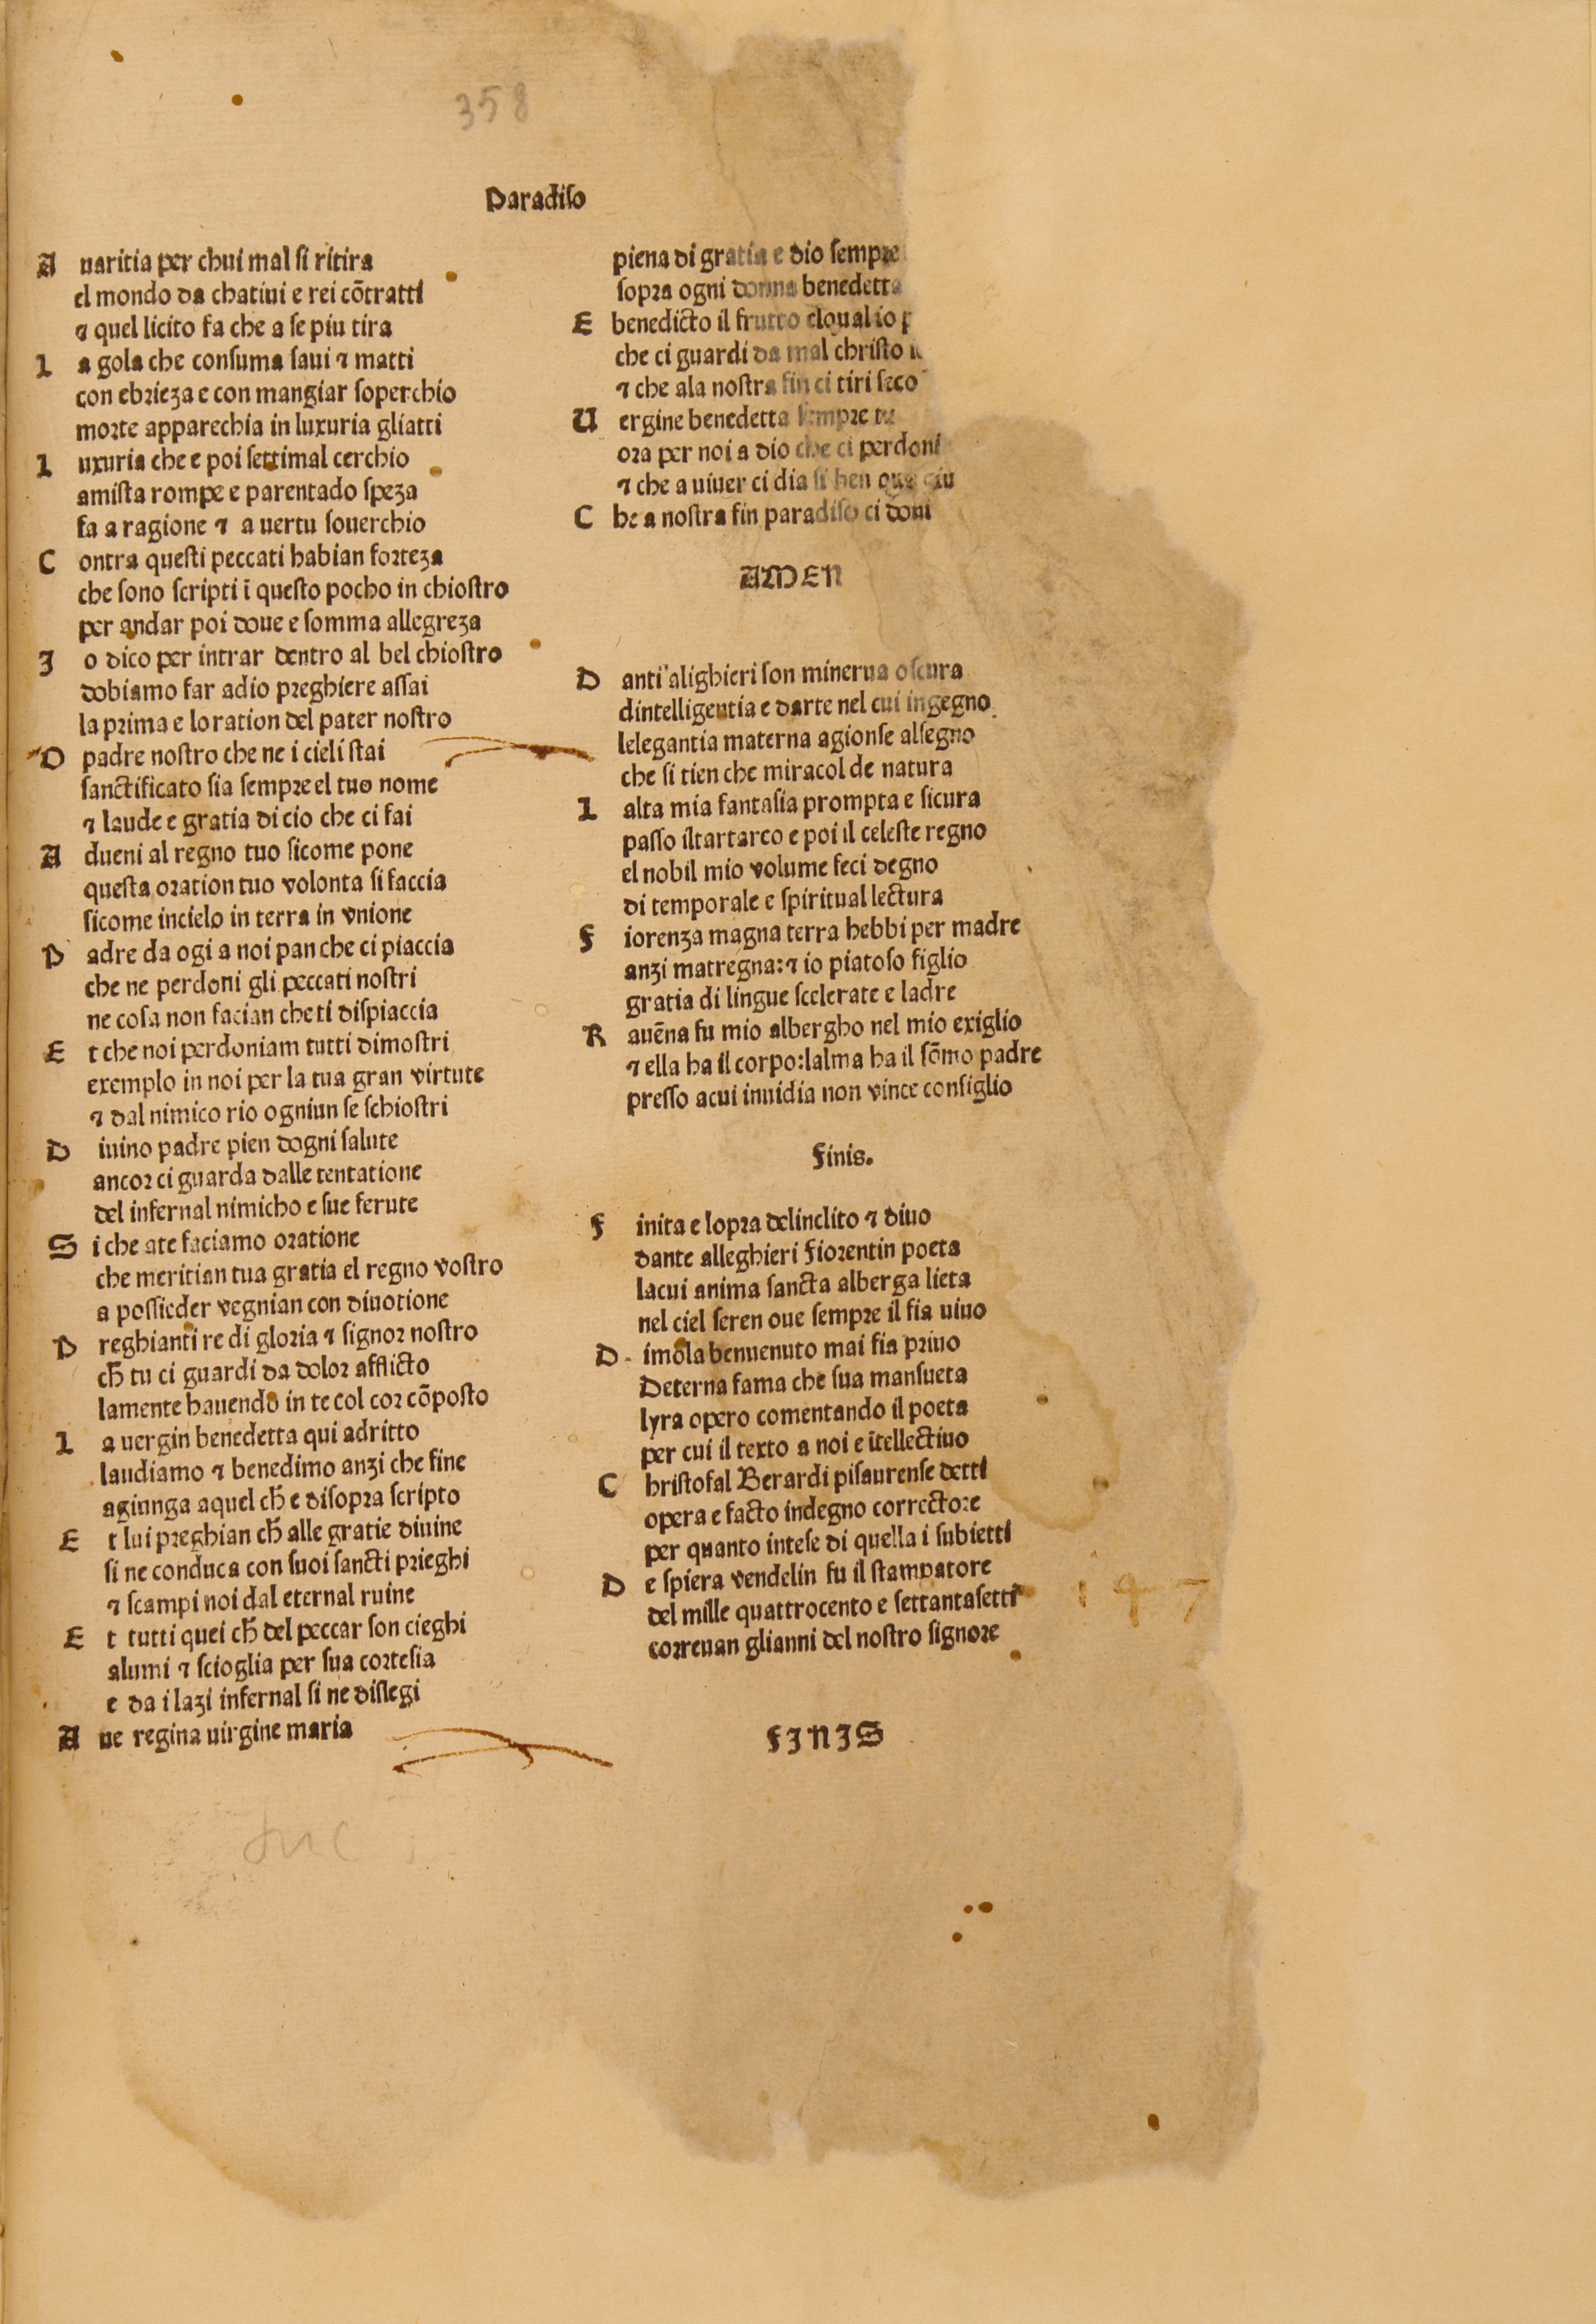 358
Paradiſo
A uaritia per chui mal ſi ritira
el mondo da chatiui e rei cōtratti
⁊ quel licito fa che a ſe piu tira
L a gola che conſuma ſaui ⁊ matti
con ebrieza e con mangiar ſoperchio
morte apparechia in luxuria gliatti
L uxuria che e poi ſettimal cerchio
amiſta rompe e parentado ſpeza
fa a ragione ⁊ a uertu ſouerchio
C ontra queſti peccati habian forteza
che ſono ſcripti ī queſto pocho in chioſtro
per andar poi doue e ſomma allegreza
I o dico per intrar dentro al bel chioſtro
dobiamo far adio preghiere aſſai
la prima e loration del pater noſtro
O padre noſtro che ne i cieli ſtai
ſanctificato ſia ſempre el tuo nome
⁊ laude e gratia di cio che ci fai
A dueni al regno tuo ſicome pone
queſta oration tuo volonta ſi faccia
ſicome incielo in terra in vnione
P adre da ogi a noi pan che ci piaccia
che ne perdoni gli peccati noſtri
ne coſa non facian che ti diſpiaccia
E t che noi perdoniam tutti dimoſtri
exemplo in noi per la tua gran virtute
⁊ dal nimico rio ogniun ſe ſchioſtri
D iuino padre pien dogni ſalute
ancor ci guarda dalle tentatione
del infernal nimicho e ſue ferute
S i che ate faciamo oratione
che meritian tua gratia el regno voſtro
a poſſieder vegnian con diuotione
P reghianti re di gloria ⁊ ſignor noſtro
cħ tu ci guardi da dolor afflicto
lamente hauendo in te col cor cōpoſto
L a uergin benedetta qui adritto
laudiamo ⁊ benedimo anzi che fine
agiunga aquel cħ e diſopra ſcripto
E t lui preghian cħ alle gratie diuine
ſi ne conduca con ſuoi ſancti prieghi
⁊ ſcampi noi dal eternal ruine
E t tutti quei cħ del peccar ſon cieghi
alumi ⁊ ſcioglia per ſua corteſia
e da i lazi infernal ſi ne diſlegi
A ue regina uirgine maria
piena di gratia e dio ſempre
ſopra ogni donna benedetta
E benedicto il frutto eloual io
che ci guardi da mal chriſto
⁊ che ala noſtra fin ci tiri ſeco
U ergine benedetta ſempre tu
ora per noi a dio che ci perdoni
⁊ che a uiuer ci dia ſi ben qua giu
C he a noſtra fin paradiſo ci doni
AMEN
D anti alighieri ſon minerua oſcura
dintelligentia e darte nel cui ingegno
lelegantia materna agionſe alſegno
che ſi tien che miracol de natura
L alta mia fantaſia prompta e ſicura
paſſo iltartareo e poi il celeſte regno
el nobil mio volume feci degno
di temporale e ſpiritual lectura
F iorenza magna terra hebbi per madre
anzi matregna:⁊ io piatoſo figlio
gratia di lingue ſcelerate e ladre
R auēna fu mio albergho nel mio exiglio
⁊ ella ha il corpo:lalma ha il ſōmo padre
preſſo acui inuidia non vince conſiglio
Finis.
F inita e lopra delinclito ⁊ diuo
dante alleghieri Fiorentin poeta
lacui anima ſancta alberga lieta
nel ciel ſeren oue ſempre il fia uiuo
D imola benuenuto mai fia priuo
Deterna fama che ſua manſueta
lyra opero comentando il poeta
per cui il texto a noi e ītellectiuo
C hriſtofal Berardi piſaurenſe detti
opera e facto indegno correctore
per quanto inteſe di quella i ſubietti
D e ſpiera vendelin fu il ſtampatore
del mille quattrocento e ſettantaſetti
correuan glianni del noſtro ſignore
FINIS